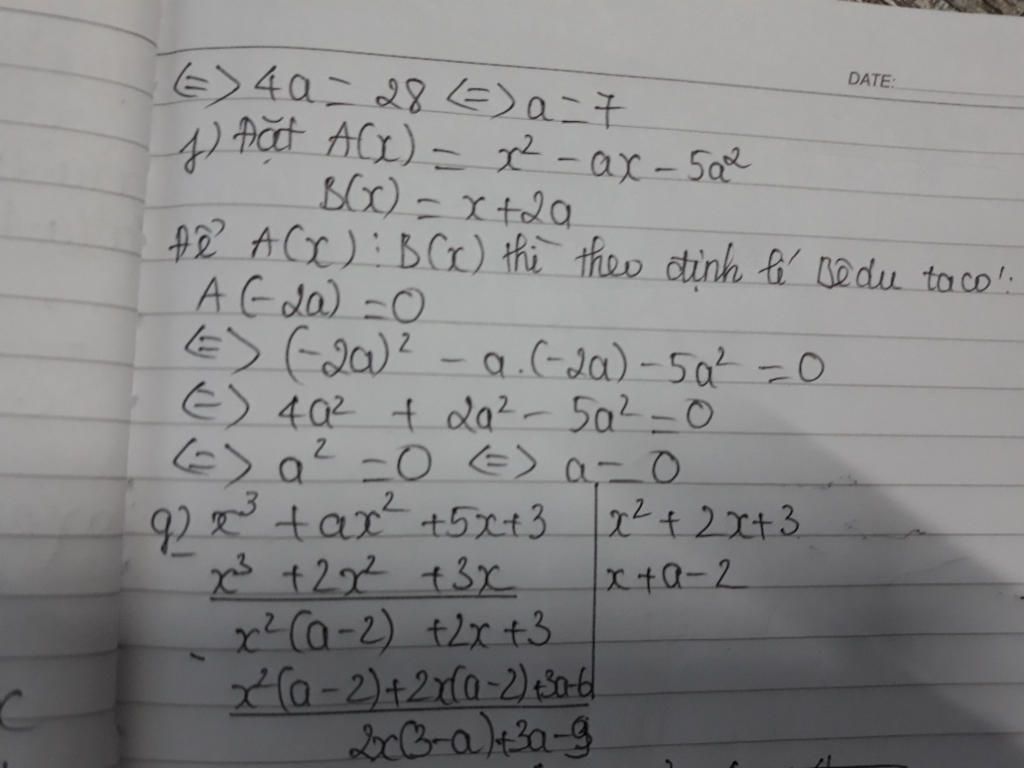 DATE:
<=> 4a = 28 <=> a = 7
f) Đặt A(x) = x² - ax - 5a²
B(x) = x + 2a
Để A(x) ⋮ B(x) thì theo định lí Bêdu ta có:
A(-2a) = 0
<=> (-2a)² - a.(-2a) - 5a² = 0
<=> 4a² + 2a² - 5a² = 0
<=> a² = 0 <=> a = 0
g) x³ + ax² + 5x + 3 | x² + 2x + 3
x³ + 2x² + 3x | x + a - 2
- x²(a - 2) + 2x + 3
x²(a - 2) + 2x(a - 2) + 3a - 6
2x(3 - a) + 3a - 9